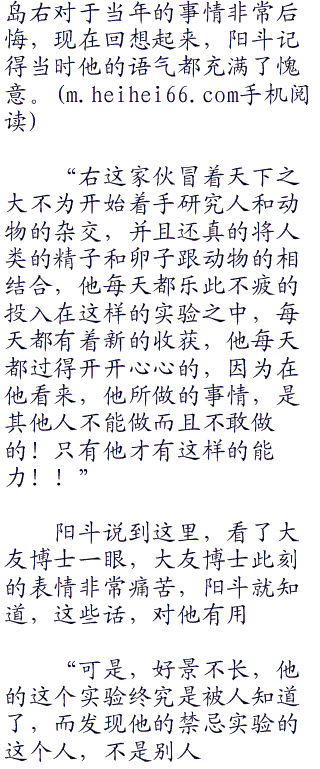 岛右对于当年的事情非常后
悔，现在回想起来，阳斗记
得当时他的语气都充满了愧
意。(m.heihei66.com手机阅
读)
“右这家伙冒着天下之
大不为开始着手研究人和动
物的杂交，并且还真的将人
类的精子和卵子跟动物的相
结合，他每天都乐此不疲的
投入在这样的实验之中，每
天都有着新的收获，他每天
都过得开开心心的，因为在
他看来，他所做的事情，是
其他人不能做而且不敢做
的！只有他才有这样的能
力！！”
阳斗说到这里，看了大
友博士一眼，大友博士此刻
的表情非常痛苦，阳斗就知
道，这些话，对他有用
“可是，好景不长，他
的这个实验终究是被人知道
了，而发现他的禁忌实验的
这个人，不是别人